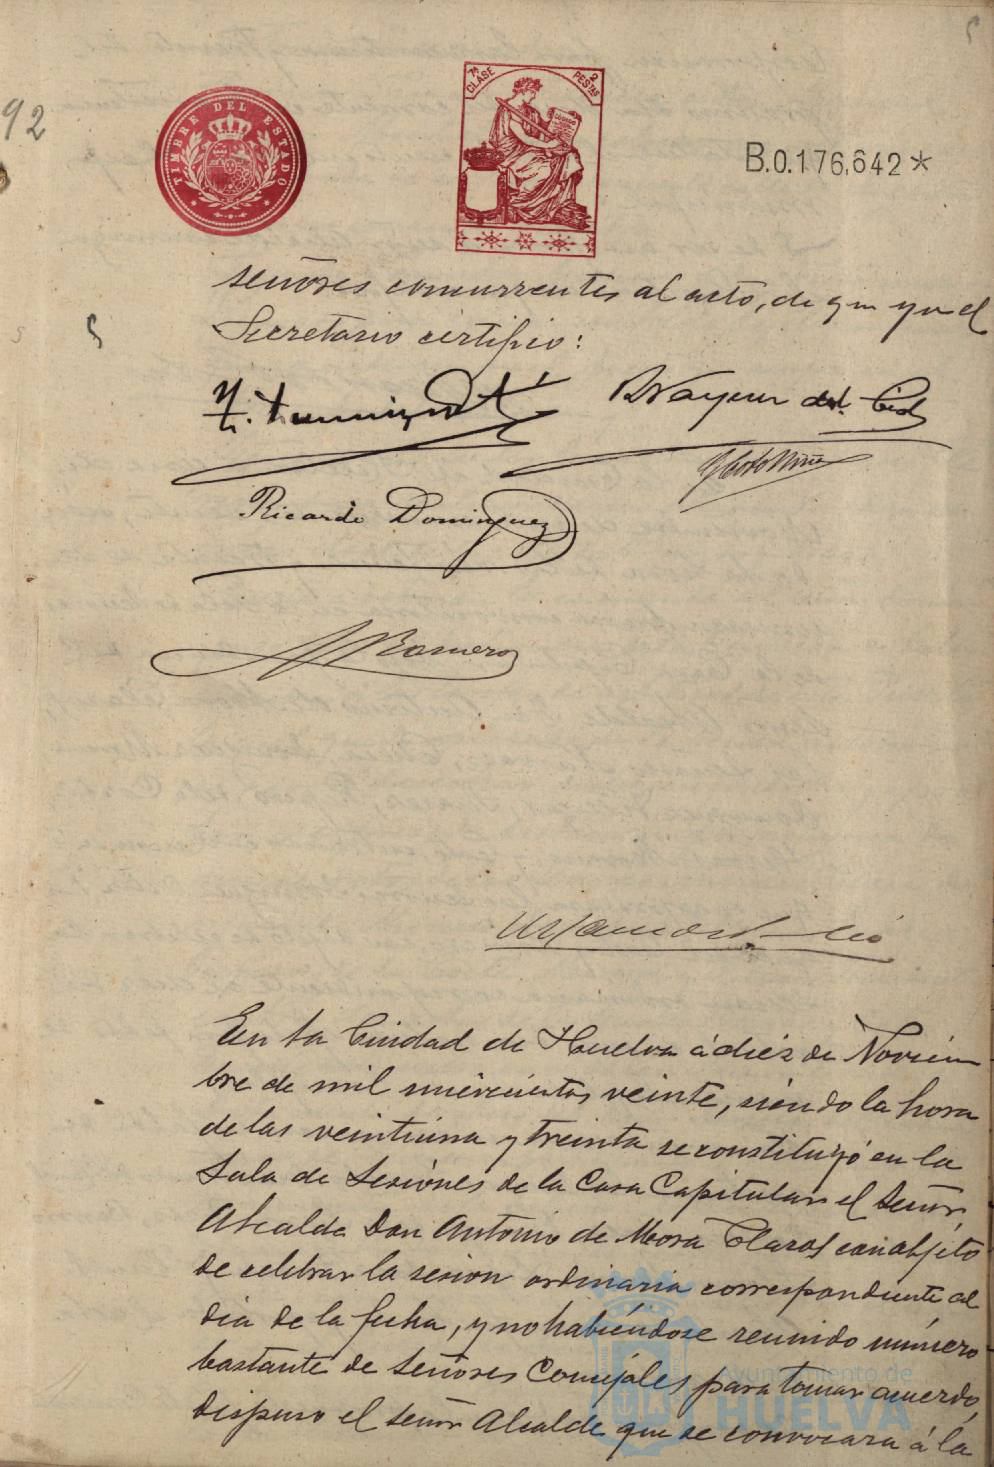 92
TIMBRE DEL ESTADO
7ª CLASE
2 PESTAS
B.0.176,642*
señores concurrentes al acto, de que yo el
Secretario certifico:
Ricardo Dominguez
Romero
En la Ciudad de Huelva á diez de Noviem
bre de mil novecientos veinte, siendo la hora
de las veintiuna y treinta se constituyó en la
Sala de Sesiones de la Casa Capitular el Señor
Alcalde Don Antonio de Mora Claros con objeto
de celebrar la sesion ordinaria correspondiente al
dia de la fecha, y no habiéndose reunido número
bastante de Señores Concejales para tomar acuerdo,
dispuso el Señor Alcalde que se convocara á la
Ayuntamiento de
HUELVA